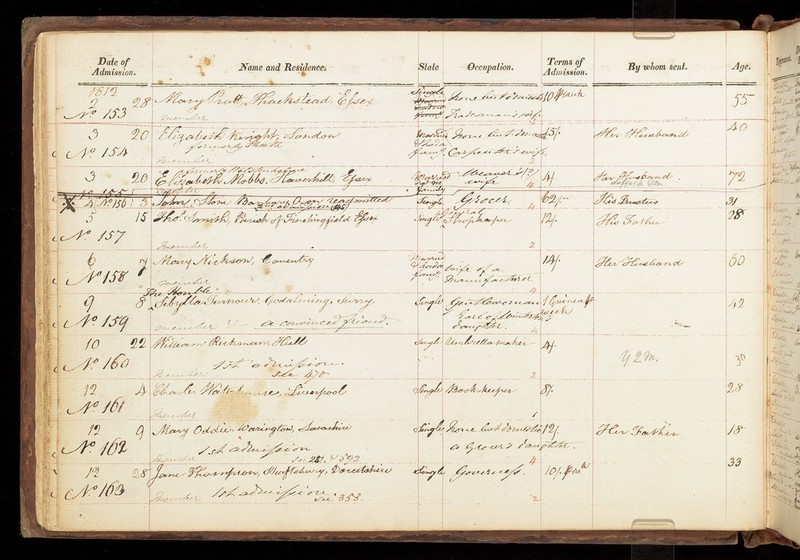 Date of Admission. Name and Residence. State Occupation. Terms of Admission. By whom sent. Age.
1812
2 28 Mary Pratt, Thackstead, Essex Single None but domestic 10/ 55
No 153 member wife
3 20 Elizabeth Knight, London Married None but 15/. Her Husband 40
formerly
No 154 & had a fam'y. Carpenter's wife
member 2
3 20 Elizabeth Mobbs, Haverhill, Essex Married Weaver's wife 4/ Her Husband 72
No 155 family 4
4 No 156 3 John, Stone readmitted Single Grocer 62/ His Trustees 31
5 15 Tho. Smith, Parish of Finchingfield Essex Single Shopkeeper 12/. His Father 28
No 157
member 2
6 7 Mary Nickson, Coventry Married & had a fam'y. wife of a 14/. Her Husband 60
No 158 member Manufacturer
4
The Hon'ble
9 8 Sibylla Turnour, Godalming, Surry Single Gentlewoman 1 Guinea 42
No 159 member a convinced friend. Earl of daughter. week
10 22 William Rickman, Hull Single Umbrella maker 4/.
No 160 1st admission. Y.2.M. 30
member See 470 2
12 4 Charles Waterhouse, Liverpool Single Bookkeeper 8/. 28
No 161
member 1
12 9 Mary Oddie, Warington, Lancashire Single None but domestic 12/. Her Father 18
No 162 1st admission a Grocer's daughter.
member See 281. & 593 4
12 28 Jane Thompson, Shaftsbury, Dorcetshire Single Governess. 10/. 33
No 163 member 1st admission. See 353. 2